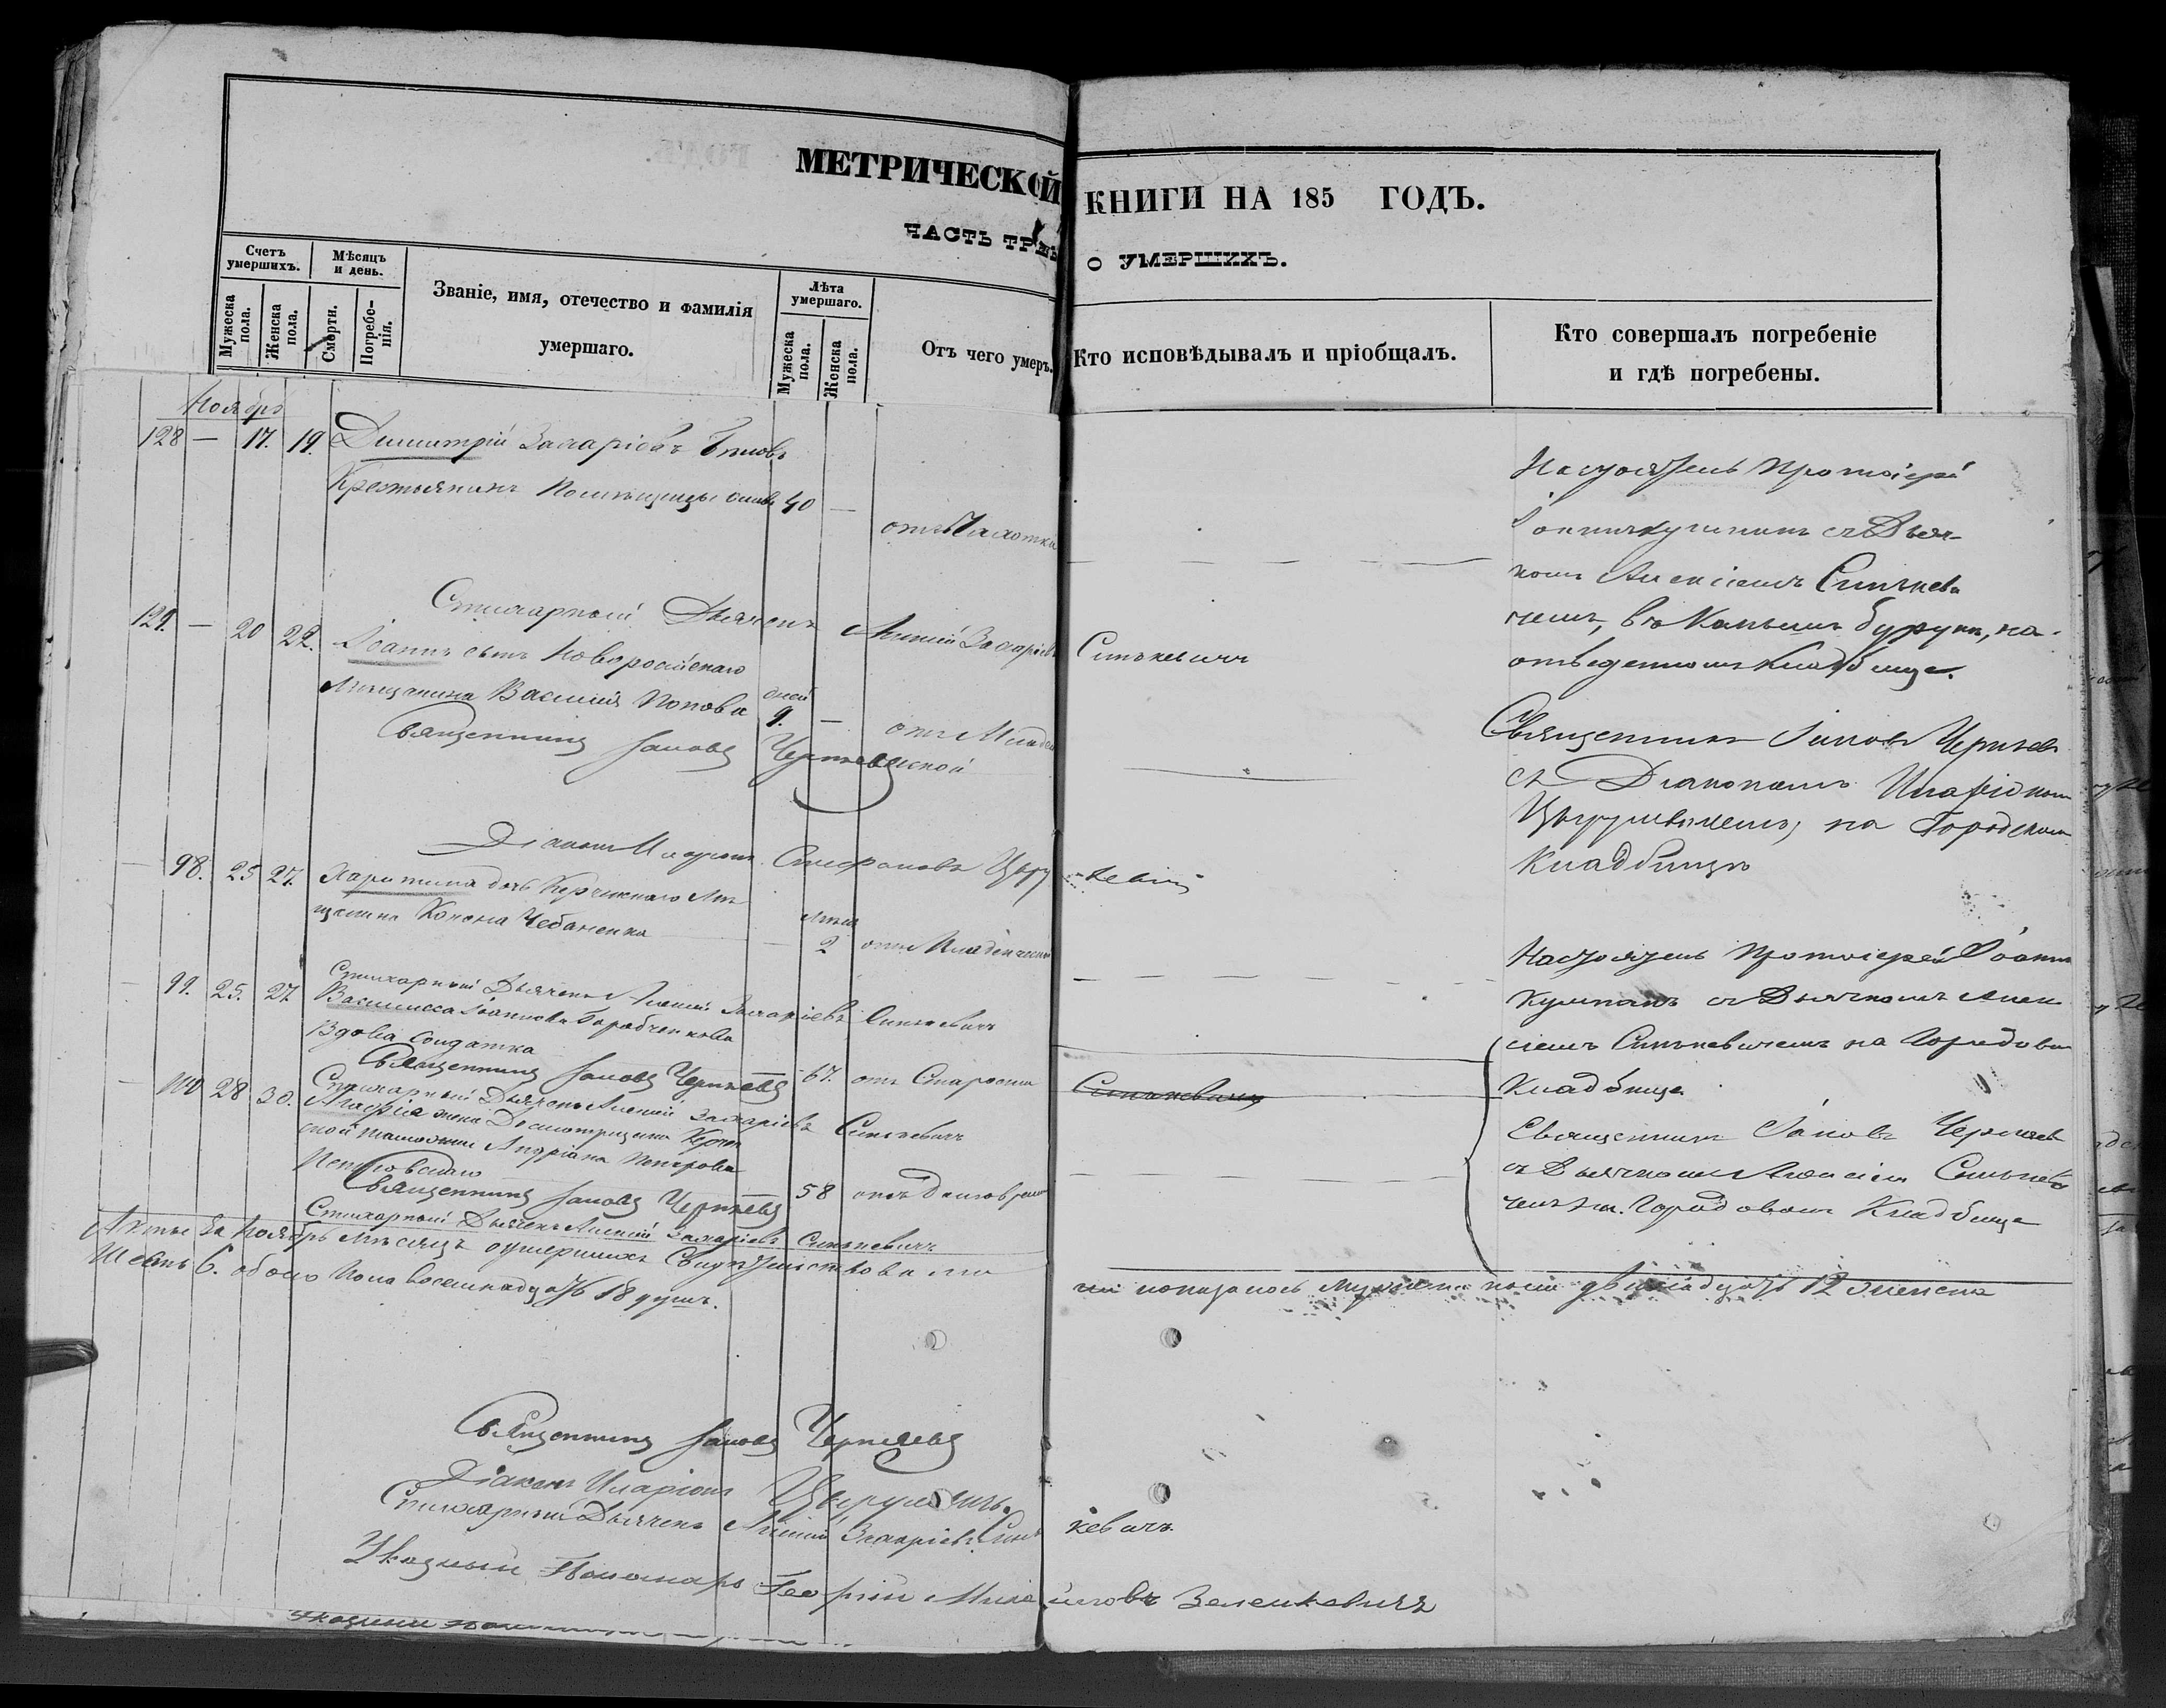 МЕТРИЧЕСКОЙ КНИГИ НА 185 ГОДЪ.
ЧАСТЬ ТРЕ
О УМЕРШИХЪ.
Счетъ умершихъ.
Мужеска пола.
Женска пола.
Мѣсяцъ и день.
Смерти.
Погребенія.
Званіе, имя, отечество и фамилія
умершаго.
Лѣта умершаго.
Мужеска пола.
Женска пола.
Отъ чего умеръ.
Кто исповѣдывалъ и пріобщалъ.
Кто совершалъ погребеніе
и гдѣ погребены.
Ноябрь
128 — 17. 19. Димитрій Захаріевъ
Крестьянинъ Помѣщицы 40 —
отъ Чахотки
Настоятель Протоіерей
съ Дьяч-
комъ Алексіемъ Синькеви
чемъ, въ Камышъ бурунѣ, на
отведенномъ Кладбище.
Стихарный Дьячекъ Алексій Захаріевъ Синькевичъ
129. — 20 22. Іоаннъ сынъ Новоросійскаго
Мѣщанина Василія Попова дней 9. — отъ Младен
ческой
Священникъ Іаковъ Черняевъ
Священникъ Іаковъ Черняевъ
съ Діакономъ Иларіономъ
на Городскомъ
Кладбищѣ
Діаконъ Иларіонъ Стефановъ
— 98. 25 27. Харитина дочь Керченскаго Мѣ
щанина Конона Чебаненка лѣтъ 2 отъ Младенческой
Настоятель Протоіерей Іоаннъ
Кушнанъ съ Дьячкомъ Алек
сіемъ Синькевичемъ на Городовом
Кладбище
Стихарный Дьячекъ Алексій Захаріевъ Синькевичъ
— 99. 25. 27 Василисса Іоаннова
Вдова Солдатка 67. отъ Старости
Священникъ Іаковъ Черняевъ
Стихарный Дьячекъ Алексій Захаріевъ Синькевичъ
Синькевичъ
— 100 28 30. Агафія жена Досмотрщика Керчен
ской таможни Андріана Петрова
58
Священникъ Іаковъ Черняевъ
съ Дьячкомъ Алексіем Синькеви
чемъ на Городовомъ Кладбище
Священникъ Іаковъ Черняевъ
Стихарный Дьячекъ Алексій Захаріевъ Синькевичъ
За Ноябрь мѣсяцъ умершихъ
показалось Мужеска пола двѣнадцать 12 женска
Шесть 6. обоего пола восемнадцать 18 душъ.
Священникъ Іаковъ Черняевъ
Діаконъ Иларіонъ
Стихарный Дьячекъ Алексій Захаріевъ Синькевичъ
Указный Пономарь Георгій Михайловъ Зеленкевичъ